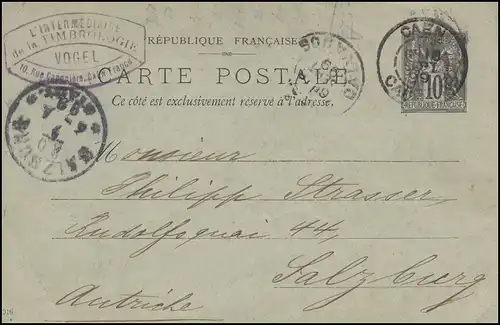 L'INTERMÉDIAIRE
de la TIMBROLOGIE
VOGEL
10, Rue Caponière, CAEN, France
RÉPUBLIQUE FRANÇAISE
CARTE POSTALE
Ce côté est exclusivement réservé à l'adresse.
CAEN
99
10
SALZBURG
Monsieur
Philipp Strasser,
Rudolfsquai 44,
Salzburg
Autriche